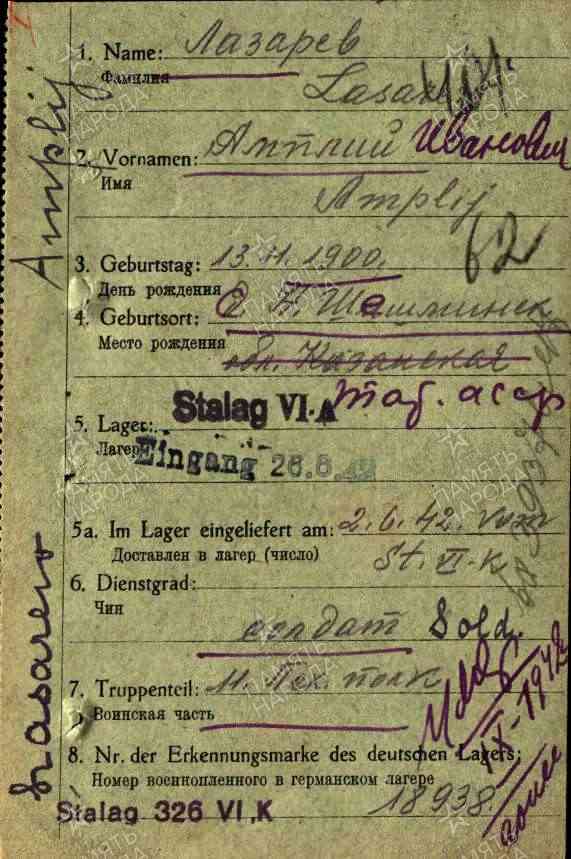 1. Name: Лазарев
Фамилия
2. Vornamen: Амплий Иванович
Имя
Amplij
3. Geburtstag: 13.11.1900.
День рождения
62
4. Geburtsort: с. Н. Шешминск
Место рождения обл. Казанская
Stalag VI-A
Тат. асср
5. Lager:
Лагерь
Eingang 26.8.42
5a. Im Lager eingeliefert am: 2.6.42. vom
Доставлен в лагерь (число) St. VI-K
6. Dienstgrad:
Чин
солдат Sold.
7. Truppenteil: 11. Пех. полк
Воинская часть
8. Nr. der Erkennungsmarke des deutschen Lagers:
Номер военнопленного в германском лагере
18938.
Stalag 326 VI,K
Amplij
IX-1942
ПАМЯТЬ НАРОДА